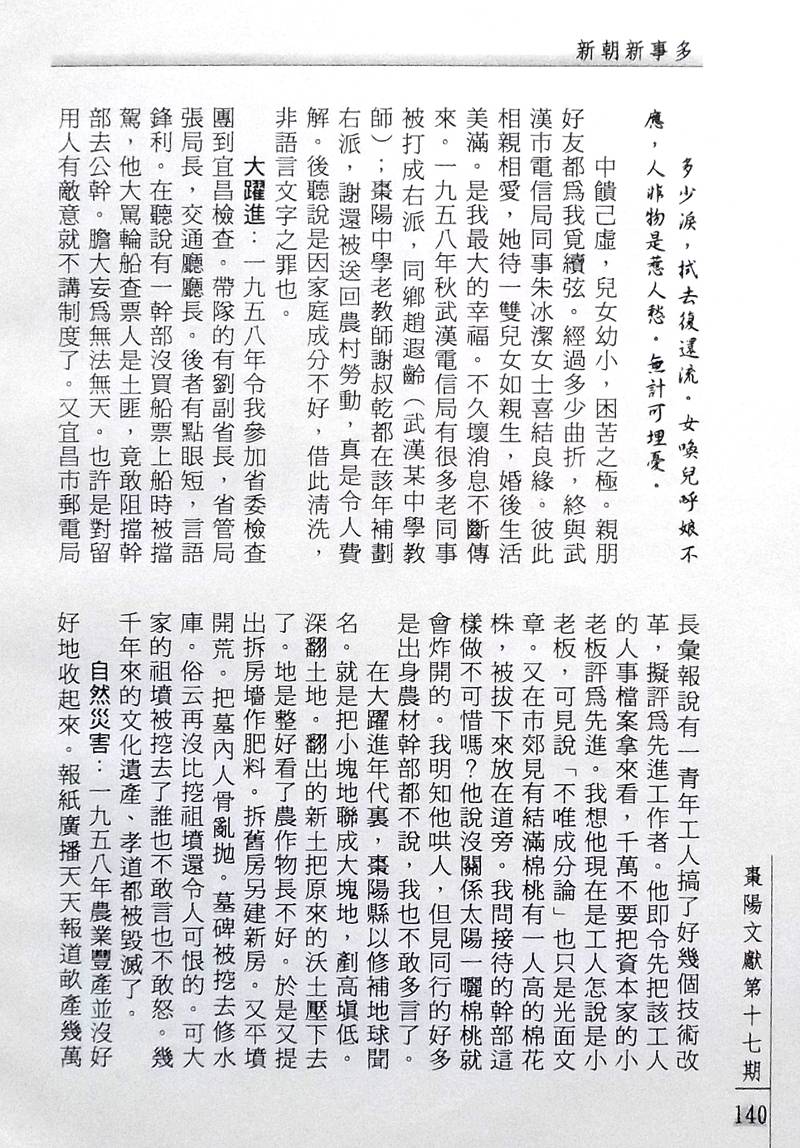 新朝新事多
多少淚，拭去復還流。女喚兒呼娘不
應，人非物是惹人愁。無計可埋憂。
中饋己虛，兒女幼小，困苦之極。親朋
好友都爲我覓續弦。經過多少曲折，終與武
漢市電信局同事朱冰潔女士喜結良緣。彼此
相親相愛，她待一雙兒女如親生，婚後生活
美滿。是我最大的幸福。不久壞消息不斷傳
來。一九五八年秋武漢電信局有很多老同事
被打成右派，同鄉趙遐齡（武漢某中學教
師）；棗陽中學老教師謝叔乾都在該年補劃
右派，謝還被送回農村勞動，真是令人費
解。後聽說是因家庭成分不好，借此淸洗，
非語言文字之罪也。
大躍進：一九五八年令我參加省委檢查
團到宜昌檢查。帶隊的有劉副省長，省管局
張局長，交通廳廳長。後者有點眼短，言語
鋒利。在聽說有一幹部沒買船票上船時被擋
駕，他大罵輪船查票人是土匪，竟敢阻擋幹
部去公幹。膽大妄爲無法無天。也許是對留
用人有敵意就不講制度了。又宜昌市郵電局
長彙報說有一青年工人搞了好幾個技術改
革，擬評爲先進工作者。他即令先把該工人
的人事檔案拿來看，千萬不要把資本家的小
老板評爲先進。我想他現在是工人怎說是小
老板，可見說「不唯成分論」也只是光面文
章。又在市郊見有結滿棉桃有一人高的棉花
株，被拔下來放在道旁。我問接待的幹部這
樣做不可惜嗎？他說沒關係太陽一曬棉桃就
會炸開的。我明知他哄人，但見同行的好多
是出身農材幹部都不說，我也不敢多言了。
在大躍進年代裏，棗陽縣以修補地球聞
名。就是把小塊地聯成大塊地，剷高填低。
深翻土地。翻出的新土把原來的沃土壓下去
了。地是整好看了農作物長不好。於是又提
出拆房墻作肥料。拆舊房另建新房。又平墳
開荒。把墓內人骨亂拋。墓碑被挖去修水
庫。俗云再沒比挖祖墳還令人可恨的。可大
家的祖墳被挖去了誰也不敢言也不敢怒。幾
千年來的文化遺產、孝道都被毀滅了。
自然災害：一九五八年農業豐產並沒好
好地收起來。報紙廣播天天報道畝產幾萬
棗陽文獻第十七期
140